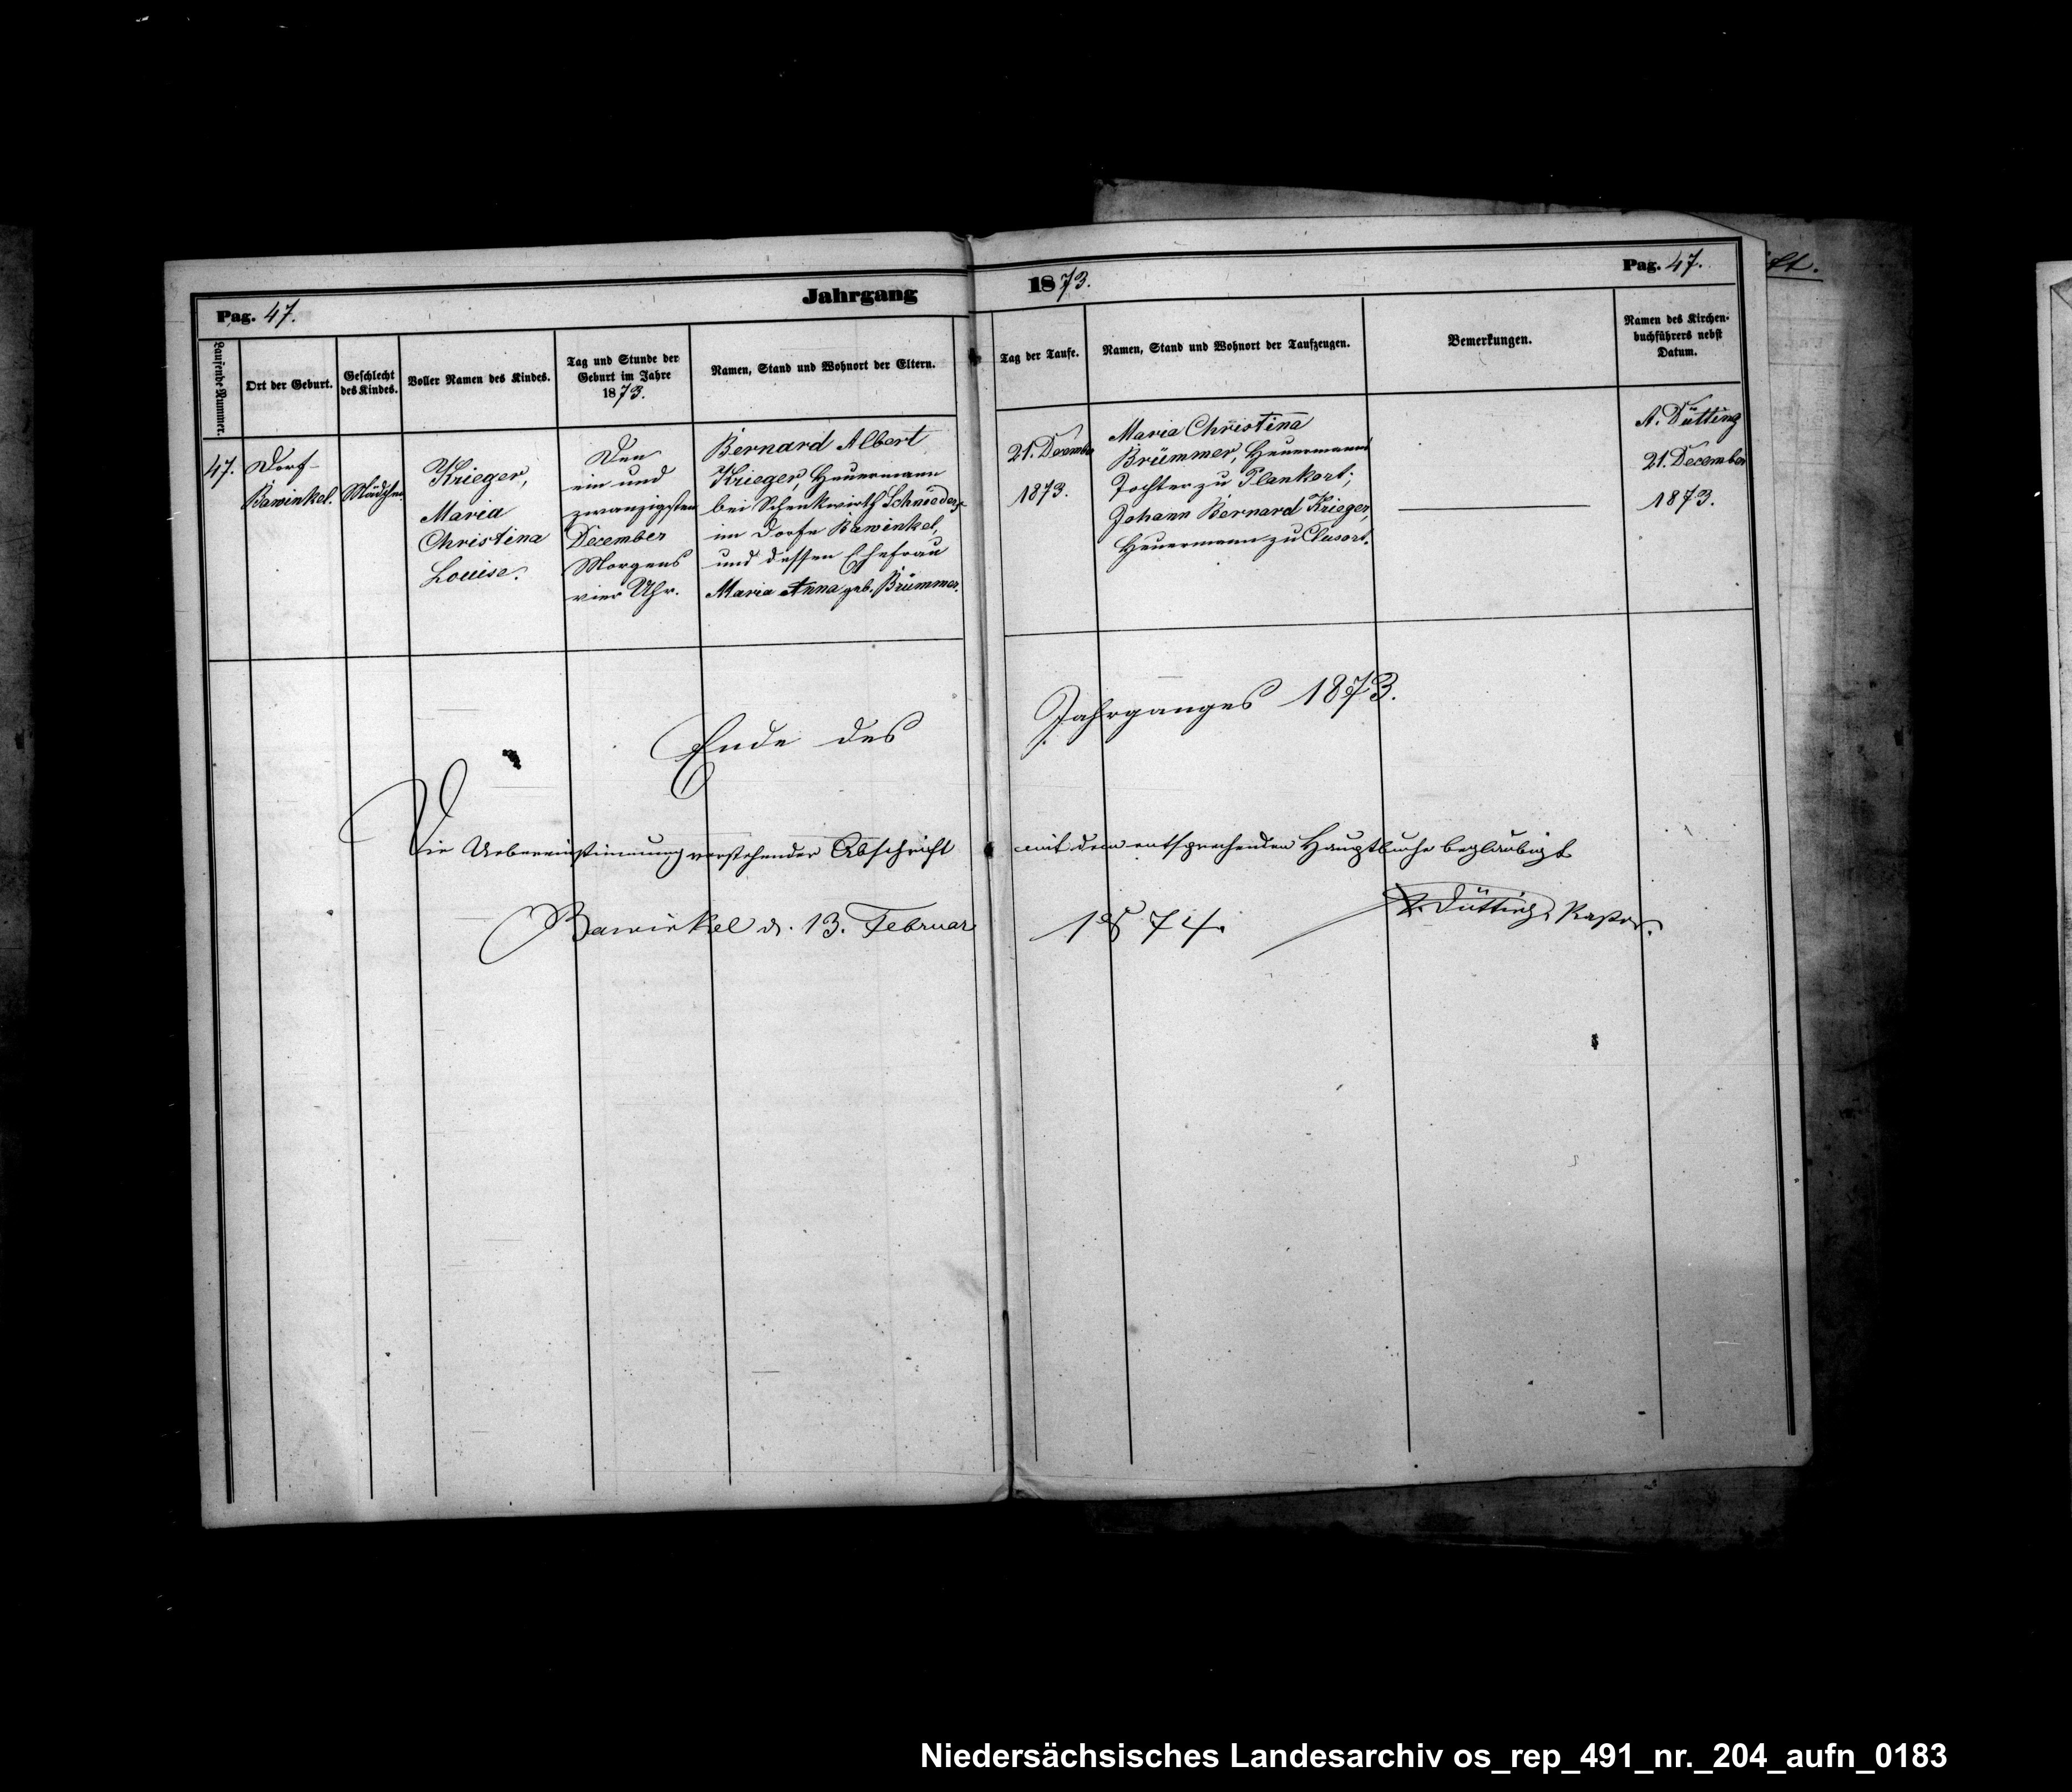 Pag. 47.
Jahrgang
1873.
Pag. 47.
Laufende Nummer.
Ort der Geburt.
Geschlecht
des Kindes.
Voller Namen des Kindes.
Tag und Stunde der
Geburt im Jahre
1873.
Namen, Stand und Wohnort der Eltern.
Tag der Taufe.
Namen, Stand und Wohnort der Taufzeugen.
Bemerkungen.
Namen des Kirchen-
buchführers nebst
Datum.
47.
Dorf-
Bawinkel.
Mädchen.
Krieger,
Maria
Christina
Louise.
Den
ein und
zwanzigsten
December
Morgens
vier Uhr.
Bernard Albert
Krieger, Heuermann
bei Schenkwirth Schnieders
im Dorfe Bawinkel,
und dessen Ehefrau
Maria Anna geb. Brümmer.
21. December
1873.
Maria Christina
Brümmer, Heuermanns
Tochter zu Plankort;
Johann Bernard Krieger,
Heuermann zu Clusort.
A. Dütting
21. December
1873.
Ende des Jahrganges 1873.
Die Uebereinstimmung vorstehender Abschrift mit dem entsprechenden Hauptbuche beglaubigt
Bawinkel d. 13. Februar 1874. A. Dütting, Pastor.
ft.
Niedersächsisches Landesarchiv os_rep_491_nr._204_aufn_0183